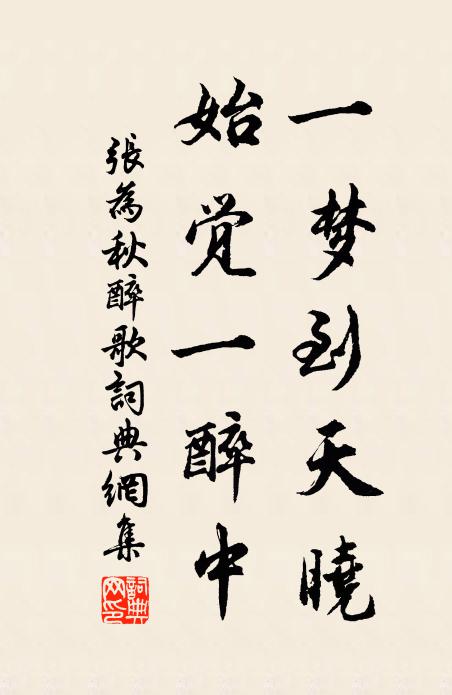 一梦到天曉
始觉一醉中
張為秋醉歌詞典網集
詞典網印